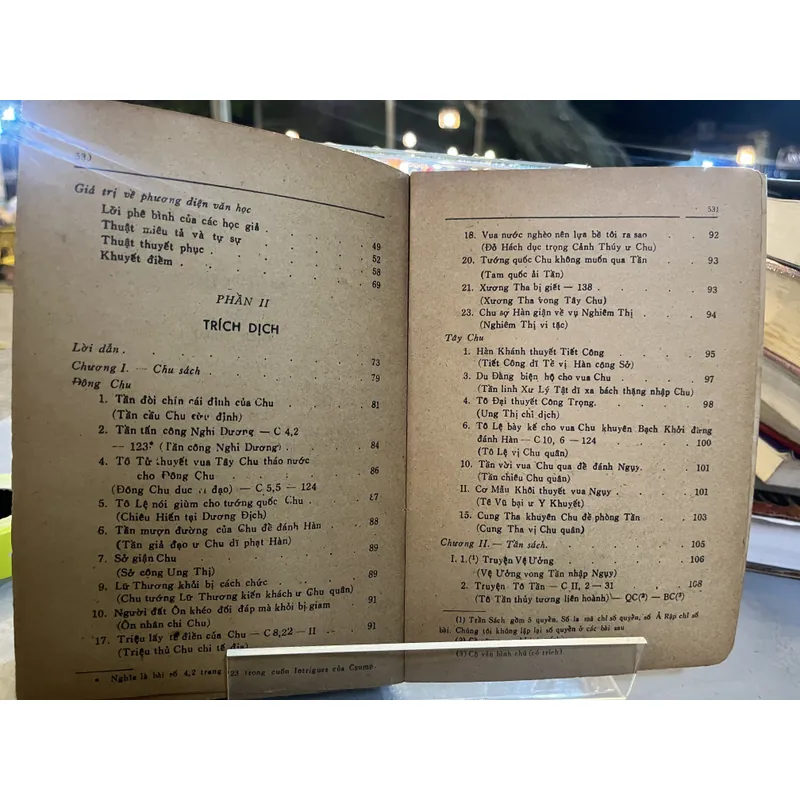 530
Giá trị về phương diện văn học
Lời phê bình của các học giả
Thuật miêu tả và tự sự 49
Thuật thuyết phục 52
Khuyết điểm 58
69
PHẦN II
TRÍCH DỊCH
Lời dẫn 73
Chương I. — Chu sách 79
Đông Chu
1. Tần đòi chín cái đỉnh của Chu 81
(Tần cầu Chu cửu đỉnh)
2. Tần tấn công Nghi Dương — C 4,2
— 123* (Tần công Nghi Dương) 84
4. Tô Tử thuyết vua Tây Chu tháo nước 86
cho Đông Chu
(Đông Chu dục vi đạo) — C 5,5 — 124
5. Tô Lệ nói giùm cho tướng quốc Chu 87
(Chiêu Hiến tại Dương Địch)
6. Tần mượn đường của Chu để đánh Hàn 88
(Tần giả đạo ư Chu dĩ phạt Hàn) 89
7. Sở giận Chu
(Sở công Ung Thị) 89
9. Lữ Thương khỏi bị cách chức
(Chu tướng Lữ Thương kiến khách ư Chu quân)
10. Người đất Ôn khéo đối đáp mà khỏi bị giam 91
(Ôn nhân chi Chu)
17. Triệu lấy tế điền của Chu — C 8,22 — II 91
(Triệu thủ Chu chi tế địa)
* Nghĩa là bài số 4,2 trang 123 trong cuốn Intrigues của Crump.
531
18. Vua nước nghèo nên lựa bề tôi ra sao 92
(Đỗ Hách dục trọng Cảnh Thúy ư Chu)
20. Tướng quốc Chu không muốn qua Tần 93
(Tam quốc ải Tần)
21. Xương Tha bị giết — 138 93
(Xương Tha vong Tây Chu)
23. Chu sợ Hàn giận về vụ Nghiêm Thị 94
(Nghiêm Thị vi tặc)
Tây Chu
1. Hàn Khánh thuyết Tiết Công 95
(Tiết Công dĩ Tề vị Hàn công Sở)
3. Du Đằng biện hộ cho vua Chu 97
(Tần linh Xư Lý Tật dĩ xa bách thặng nhập Chu)
4. Tô Đại thuyết Công Trọng 98
(Ung Thị chi dịch)
6. Tô Lệ bày kế cho vua Chu khuyên Bạch Khởi đừng
đánh Hàn — C 10, 6 — 124 100
(Tô Lệ vị Chu quân)
10. Tần vời vua Chu qua để đánh Ngụy 101
(Tần chiêu Chu quân)
II. Cơ Mẫu Khôi thuyết vua Ngụy 101
(Tê Vũ bại ư Y Khuyết)
15. Cung Tha khuyên Chu đề phòng Tần 103
(Cung Tha vị Chu quân)
Chương II. — Tần sách. 105
I. 1.(¹) Truyện Vệ Ưởng 106
(Vệ Ưởng vong Tần nhập Ngụy)
2. Truyện Tô Tần — C II, 2 — 31 108
(Tô Tần thủy tương liên hoành) — QC(²) — BC(³)
(1) Trần Sách gồm 5 quyển. Số la mã chỉ số quyển, số Ả Rập chỉ số
bài. Chúng tôi không lặp lại số quyển ở các bài sau
(3) Cổ văn bình chú (có trích)